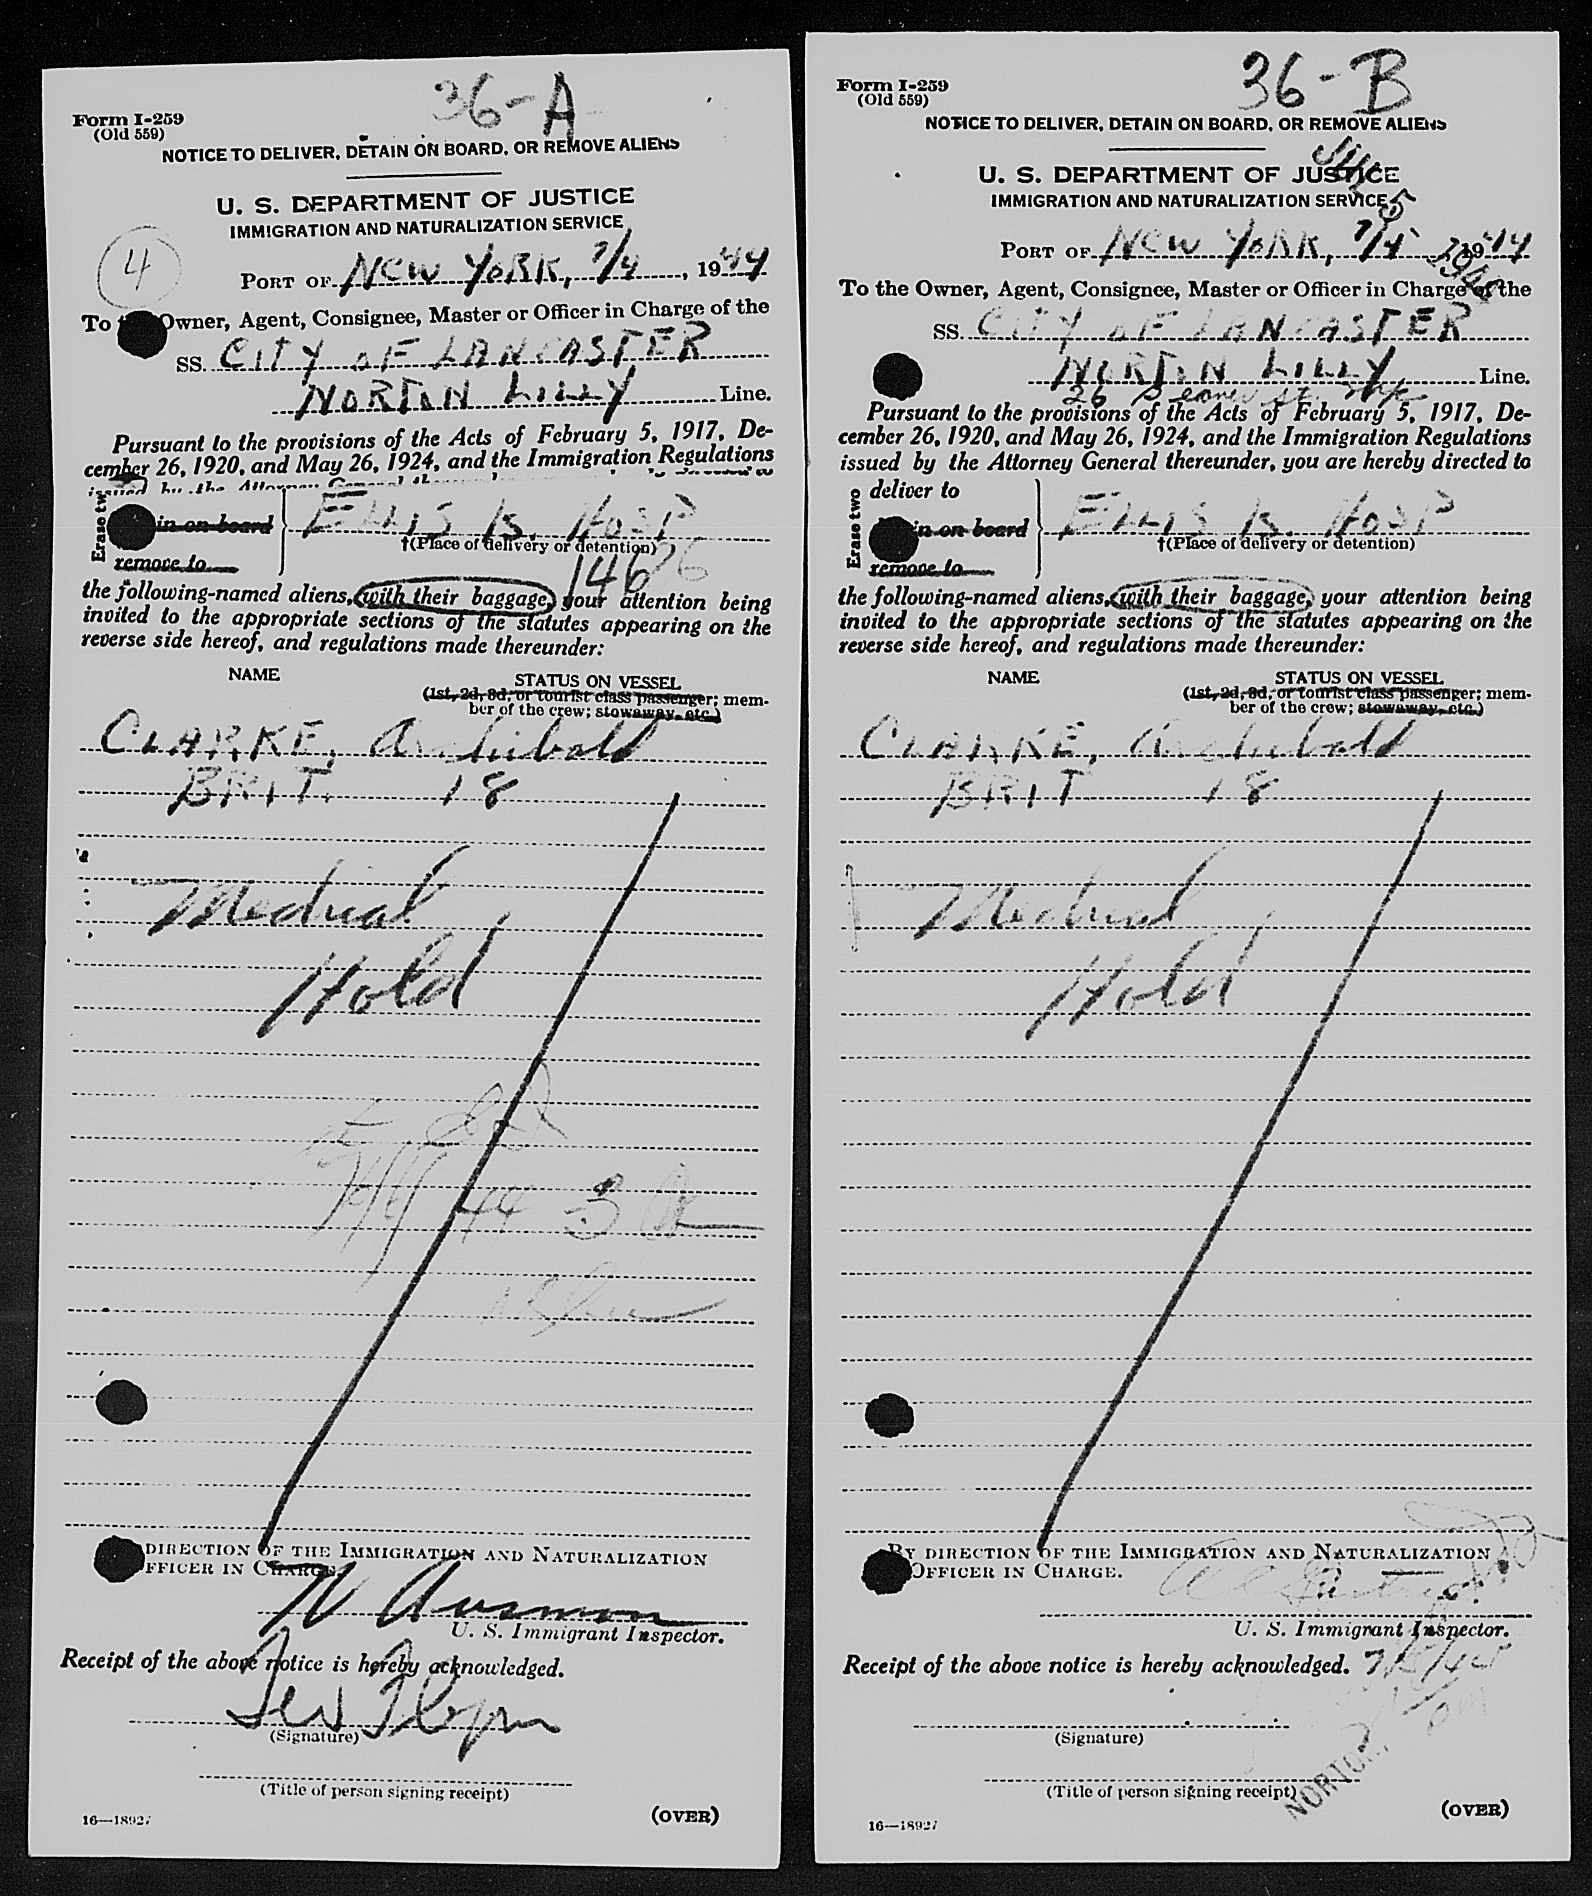 36-A
Form I-259
(Old 559)
NOTICE TO DELIVER, DETAIN ON BOARD, OR REMOVE ALIENS
U. S. DEPARTMENT OF JUSTICE
IMMIGRATION AND NATURALIZATION SERVICE
4
PORT OF NEW YORK, 7/4, 1944
To Owner, Agent, Consignee, Master or Officer in Charge of the
SS. CITY OF LANCASTER
NORTON LILLY Line.
Pursuant to the provisions of the Acts of February 5, 1917, De-
cember 26, 1920, and May 26, 1924, and the Immigration Regulations
Erase two
in on board
ELLIS IS. HOSP
†(Place of delivery or detention)
remove to
146
the following-named aliens, with their baggage, your attention being
invited to the appropriate sections of the statutes appearing on the
reverse side hereof, and regulations made thereunder:
NAME
STATUS ON VESSEL
(1st, 2d, 3d, or tourist class passenger; mem-
ber of the crew; stowaway, etc.)
CLARKE, Archibald
BRIT. 18
Medical
Hold
44 3
DIRECTION OF THE IMMIGRATION AND NATURALIZATION
FFICER IN CHARGE.
U. S. Immigrant Inspector.
Receipt of the above notice is hereby acknowledged.
(Signature)
(Title of person signing receipt)
16—18927
(OVER)
36-B
Form I-259
(Old 559)
NOTICE TO DELIVER, DETAIN ON BOARD, OR REMOVE ALIENS
U. S. DEPARTMENT OF JUSTICE
IMMIGRATION AND NATURALIZATION SERVICE
JUL 5
PORT OF NEW YORK, 7/4 1944
To the Owner, Agent, Consignee, Master or Officer in Charge of the
SS. CITY OF LANCASTER
NORTON LILLY Line.
26
Pursuant to the provisions of the Acts of February 5, 1917, De-
cember 26, 1920, and May 26, 1924, and the Immigration Regulations
issued by the Attorney General thereunder, you are hereby directed to
Erase two
deliver to
in on board
ELLIS IS. HOSP
†(Place of delivery or detention)
remove to
the following-named aliens, with their baggage, your attention being
invited to the appropriate sections of the statutes appearing on the
reverse side hereof, and regulations made thereunder:
NAME
STATUS ON VESSEL
(1st, 2d, 3d, or tourist class passenger; mem-
ber of the crew; stowaway, etc.)
CLARKE, Archibald
BRIT 18
Medical
Hold
BY DIRECTION OF THE IMMIGRATION AND NATURALIZATION
OFFICER IN CHARGE.
U. S. Immigrant Inspector.
Receipt of the above notice is hereby acknowledged.
(Signature)
(Title of person signing receipt)
16—18927
(OVER)